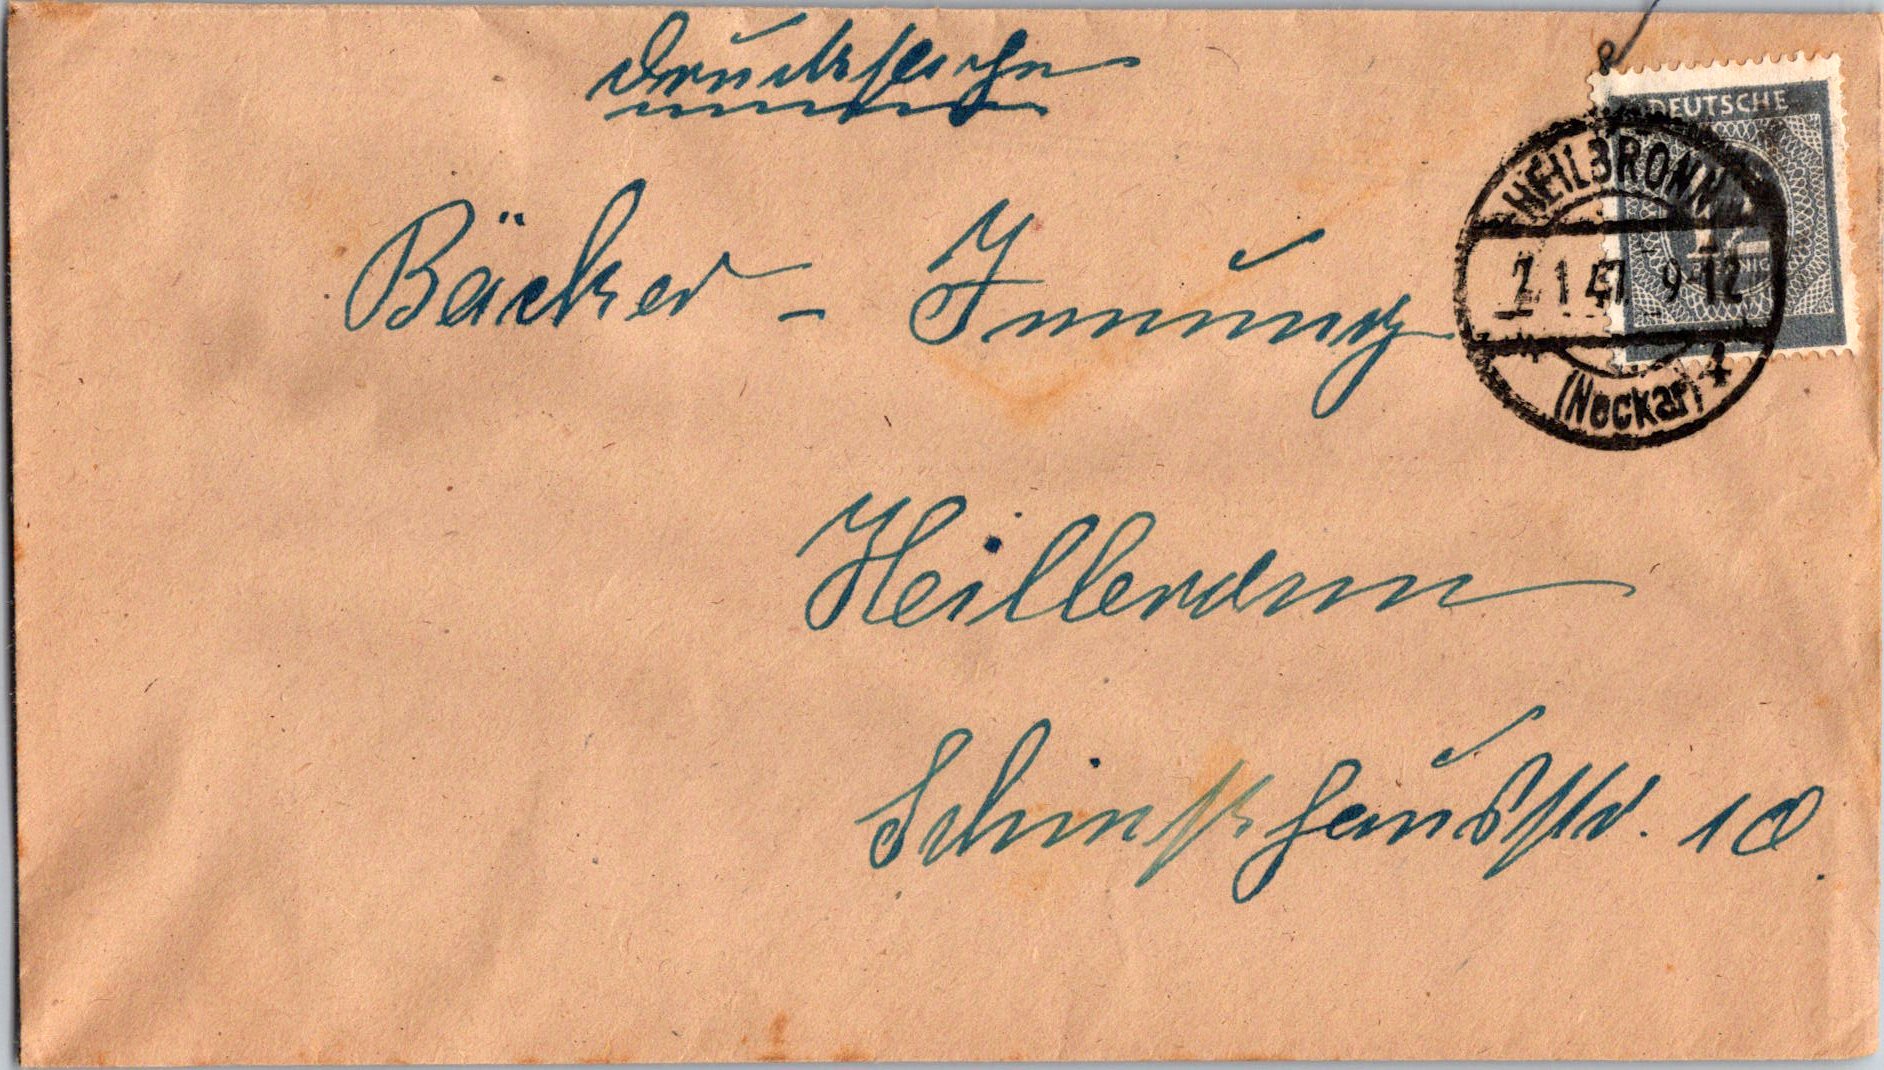 Drucksache
DEUTSCHE
12
HEILBRONN
1.47 9-12
(Neckar) 4
Bäcker - Innung
Heilbronn
10